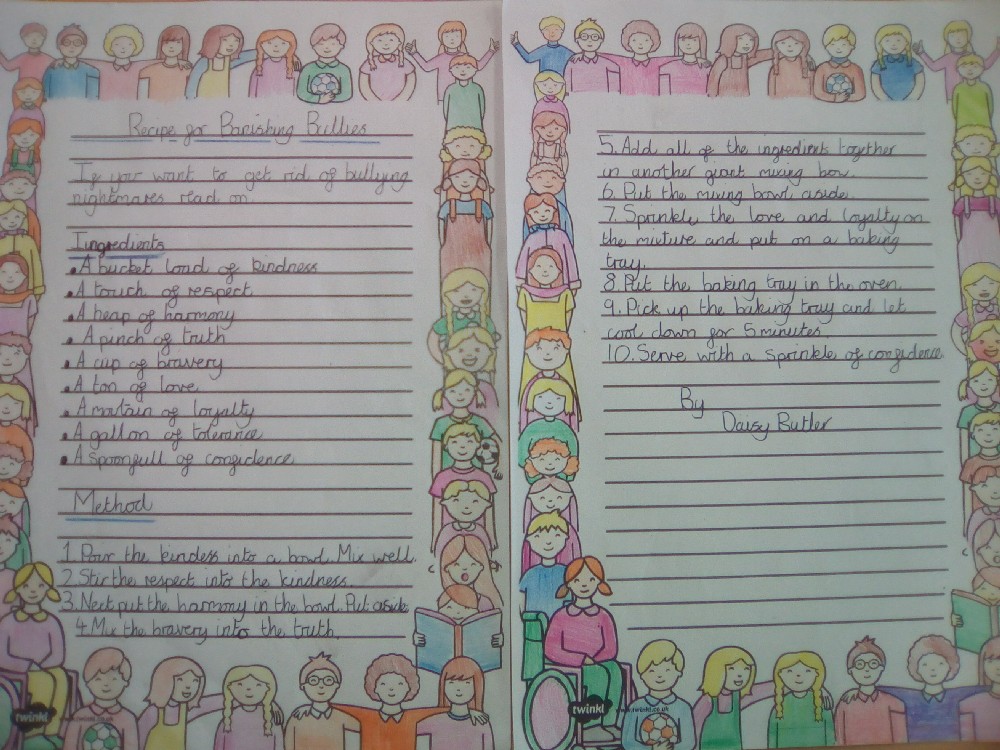 Recipe for Banishing Bullies
If your want to get rid of bullying
nightmares read on
Iingredients
• A bucket load of kindness
• A touch of respect
• A heap of harmony
• A pinch of truth
• A cup of bravery
• A ton of love
• A moutain of loyalty
• A gallon of tolerance
• A spoonfull of confidence
Method
1. Pour the kindess into a bowl. Mix well.
2. Stir the respect into the kindness.
3. Next put the harmony in the bowl. Put aside.
4. Mix the bravery into the truth.
twinkl
www.twinkl.co.uk
5. Add all of the ingredients together
in another giant mixing bow.
6. Put the mixing bowl aside.
7. Sprinkle the love and loyalty on
the mixture and put on a baking
tray.
8. Put the baking tray in the oven.
9. Pick up the baking tray and let
cool down for 5 minutes
10. Serve with a sprinkle of confidence
By
Daisy Butler
twinkl
www.twinkl.co.uk